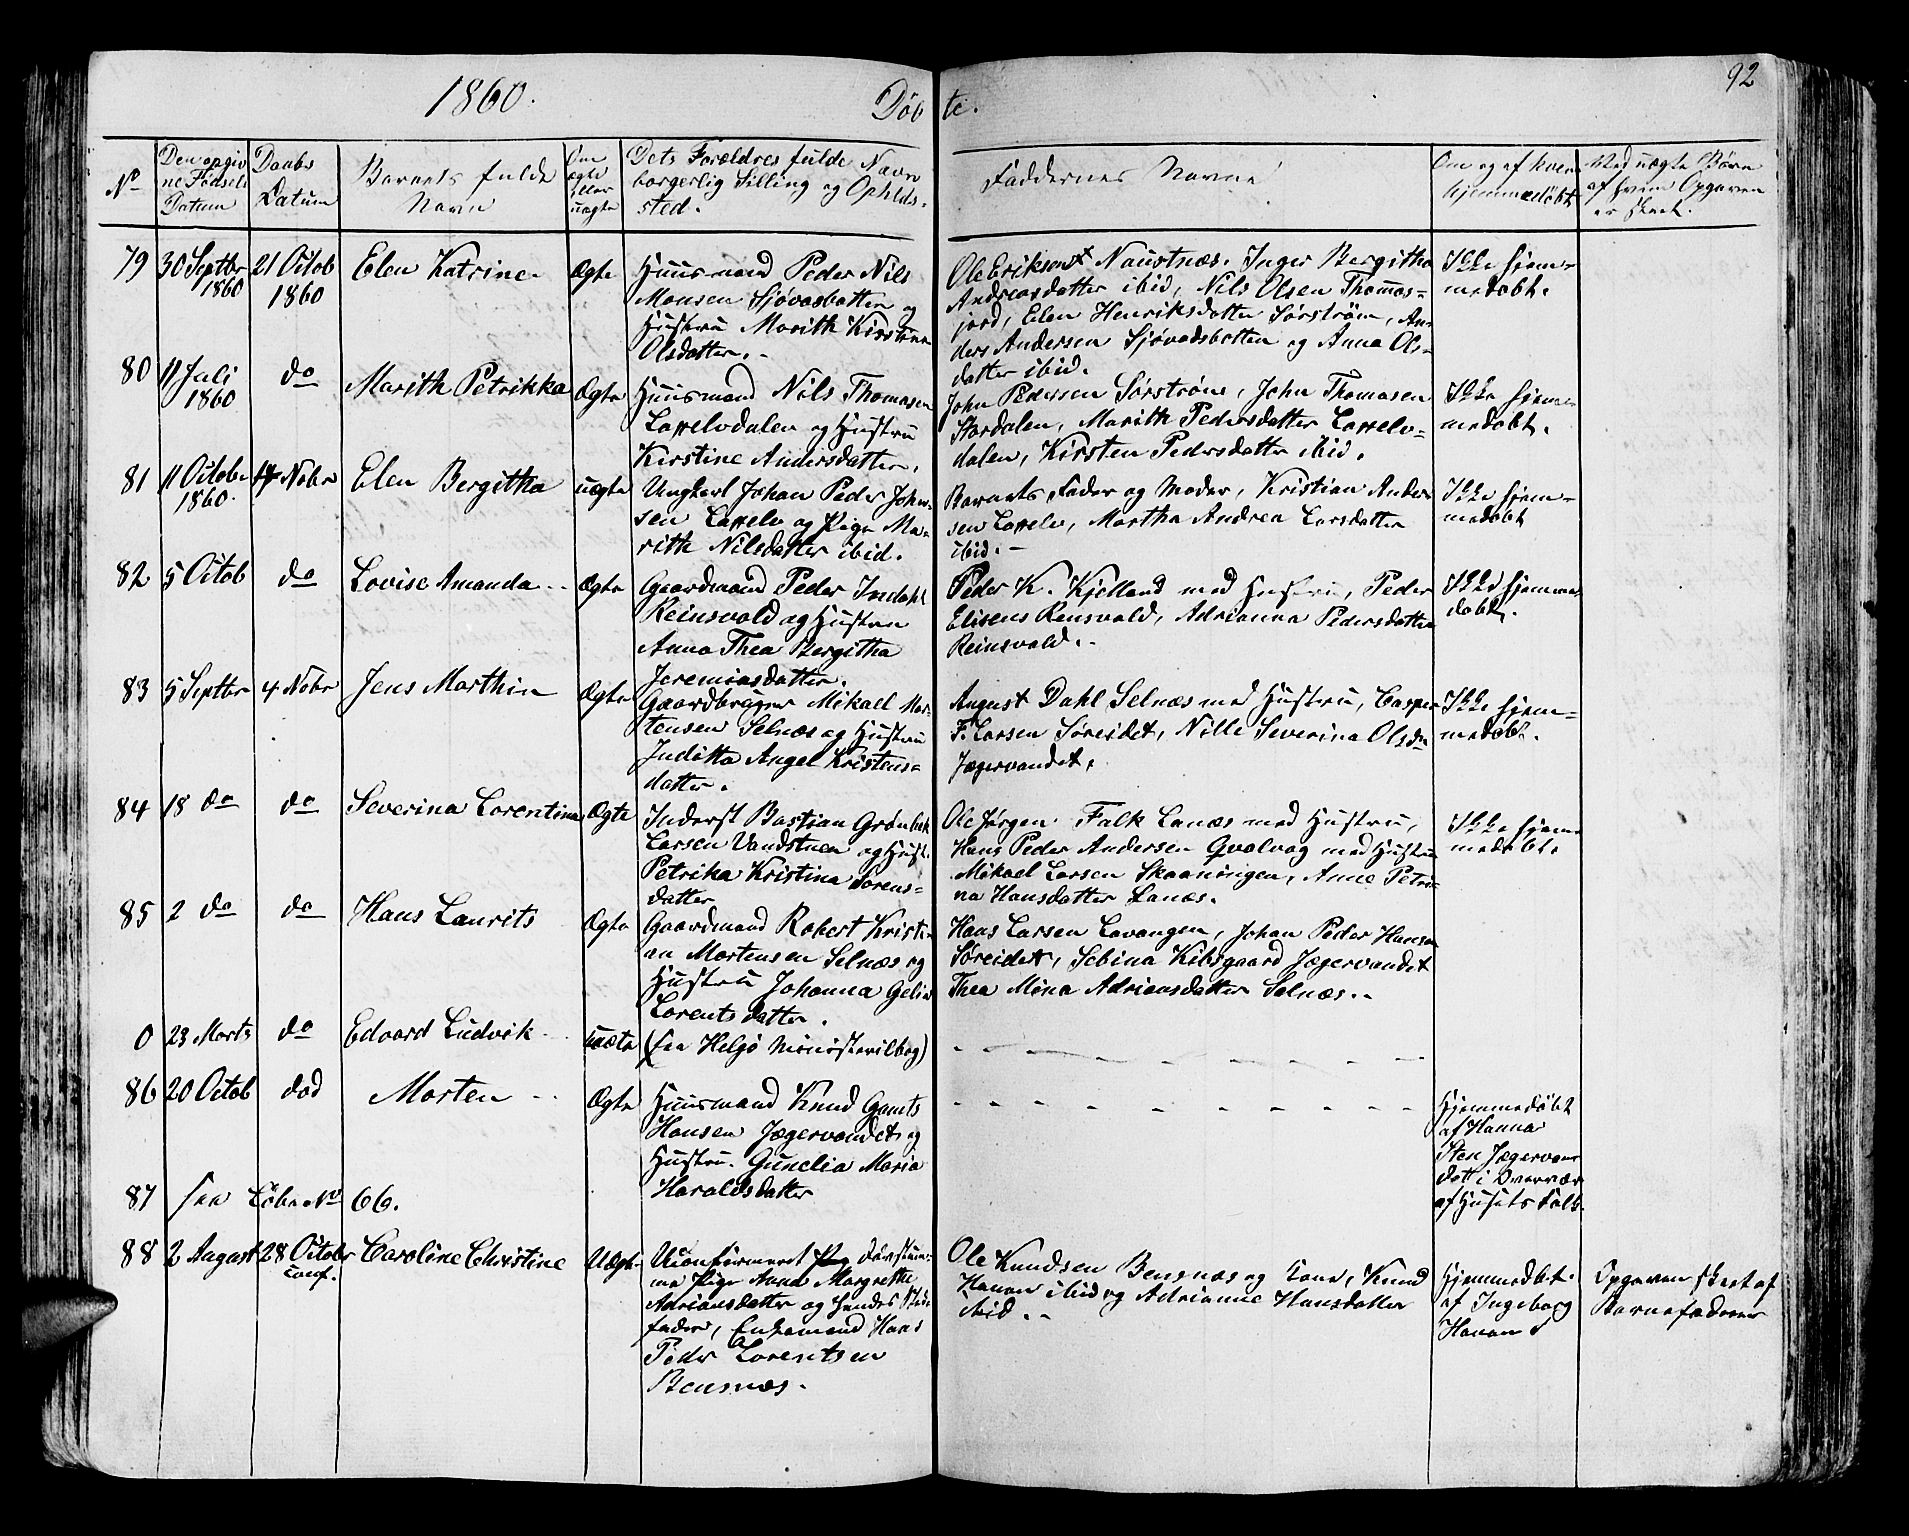 1860.
Døb te.
92
No
Den opgiv
ne Fødsels
Datum
Daabs
Datum
Barnets fulde
Navn
Om
ægte
eller
uægte
Dets Forældres fulde Navn
borgerlig Stilling og Opholds-
sted.
Faddernes Navne
Om og af hvem
hjemmedøbt
Ved uægte Børn
af hvem Opgaven
er skeet.
79
30 Septbr
1860
21 Octob
1860
Elen Katrine
Ægte
Huusmand Peder Nils
Monsen Sjøvasbotten og
Hustru Marith Kirstine
Olsdatter.
Ole Eriksen Naustnæs. Inger Bergitha
Andreasdatter ibid, Nils Olsen Thomas-
jord, Elen Henriksdatter Sørstrøm, An-
ders Andersen Sjøvadsbotten og Anna Ols-
datter ibid.
Ikke hjem-
medøbt.
80
11 Juli
1860
do
Marith Petrikka
Ægte
Huusmand Nils Thomasen
Lappelvdalen og Hustru
Kirstine Andersdatter.
John Pedersen Sørstrøm, John Thomasen
Stordalen, Marith Pedersdatter Lappelv-
dalen, Kirsten Pedersdatter ibid.
Ikke hjem-
medøbt.
81
11 Octobr
1860.
4 Nobr
Elen Bergitha
uægte
Ungkarl Johan Peder John-
sen Lappelv og Pige Ma-
rith Nilsdatter ibid.
Barnets Fader og Moder, Kristian Ander
sen Lappelv, Martha Andrea Larsdatter
ibid.
Ikke hjem-
medøbt
82
5 Octob
do
Lovise Amanda
Ægte
Gaardmand Peder Indahl
Reinsvold og Hustru
Anna Thea Bergitha
Jeremiasdatter.
Peder K. Kjelland med Hustru, Peder
Elisens Rensvold, Adrianna Pedersdatter
Reinsvold.
Ikke hjemme
døbt.
83
5 Septbr
4 Nobr
Jens Marthin
Ægte
Gaardbruger Mikael Mor-
tensen Selnæs og Hustru
Juditta Angel Kristens-
datter.
August Dahl Selnæs med Hustru, Casper
F. Larsen Søreidet, Nille Severina Olsdr
Jægervandet.
Ikke hjem-
medøbt.
84
18 do
do
Severina Lorentina
Ægte
Inderst Bastian Grønbek
Larsen Vandstuen og Hust.
Petrika Kristina Sørens-
datter
Ole Jørgen Falk Lanæs med Hustru,
Hans Peder Andersen Qvalvag med Hustru
Mikael Larsen Skaaningen, Anne Petri-
na Hansdatter Lanæs.
Ikke hjem-
medøbt.
85
2 do
do
Hans Laurits
Ægte
Gaardmand Robert Kristi-
an Mortensen Selnæs og
Hustru Johanna Gelia
Lorentsdatter.
Hans Larsen Lavangen, Johan Peder Hansen
Søreidet, Sebina Kibsgaard Jægervandet
Thea Mina Adriansdatter Selnæs.
0
23 Marts
do
Edvard Ludvik
uægte
(see Helgø Ministerialbog)
86
20 Octob
død
Morten
Ægte
Huusmand Knud Gamts
Hansen Jægervandet og
Hustru Gunelia Maria
Haraldsdatter
Hjemmedøbt
af Hanna
Sten Jægervan
det i Overvær
af Husets Folk.
87
see Løbe No 66.
88
2 August
28 Octobr
conf.
Caroline Christine
Uægte
Uconfirmeret døvstum-
me Pige Anna Margrethe
Adriansdatter og hendes Sted-
fader, Enkemand Hans
Peder Lorentsen
Bensnæs.
Ole Knudsen Bensnæs og Kone, Knud
Hansen ibid og Adrianne Hansdatter
ibid.
Hjemmedøbt
af Ingeborg
Hansen
Opgaven skeet af
Barnefaderen